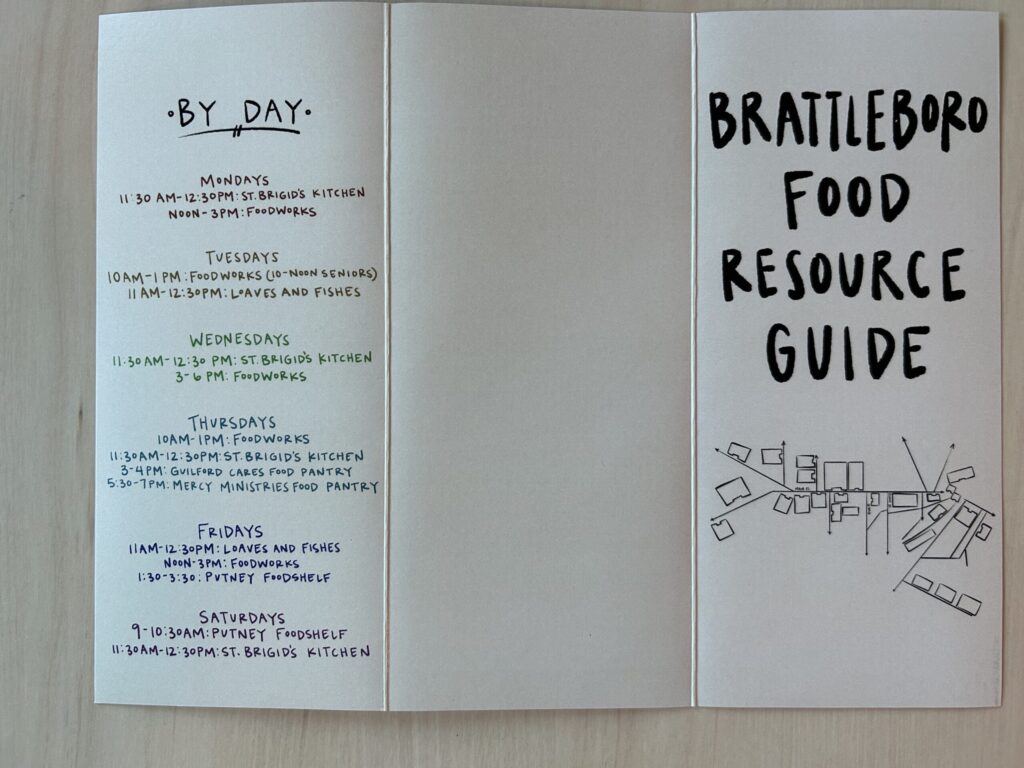 •BY DAY•
MONDAYS
11:30 AM-12:30PM: ST. BRIGID'S KITCHEN
NOON-3PM: FOODWORKS
TUESDAYS
10AM-1PM: FOODWORKS (10-NOON SENIORS)
11AM-12:30PM: LOAVES AND FISHES
WEDNESDAYS
11:30AM-12:30 PM: ST. BRIGID'S KITCHEN
3-6 PM: FOODWORKS
THURSDAYS
10AM-1PM: FOODWORKS
11:30AM-12:30PM: ST. BRIGID'S KITCHEN
3-4PM: GUILFORD CARES FOOD PANTRY
5:30-7PM: MERCY MINISTRIES FOOD PANTRY
FRIDAYS
11AM-12:30PM: LOAVES AND FISHES
NOON-3PM: FOODWORKS
1:30-3:30: PUTNEY FOODSHELF
SATURDAYS
9-10:30AM: PUTNEY FOODSHELF
11:30AM-12:30PM: ST. BRIGID'S KITCHEN
BRATTLEBORO
FOOD
RESOURCE
GUIDE
MAIN ST.